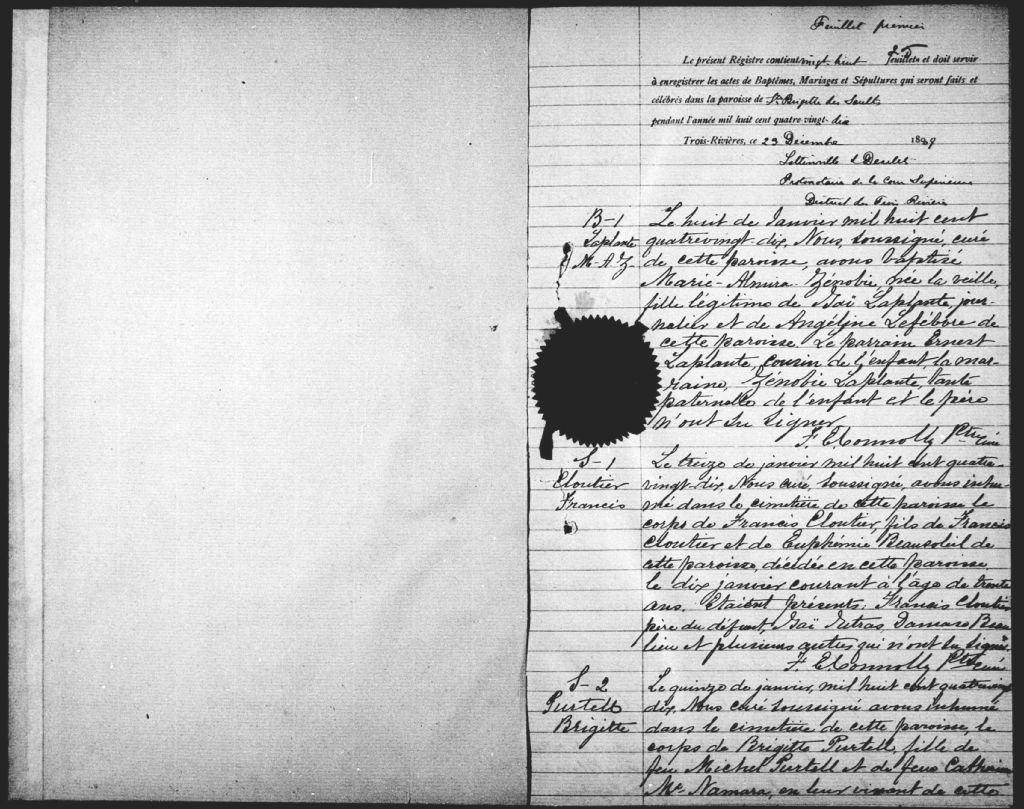 Feuillet premier
Le présent Régistre contient vingt huit feuillets et doit servir
à enregistrer les actes de Baptêmes, Mariages et Sépultures qui seront faits et
célébrés dans la paroisse de Ste Brigitte des Saults
pendant l'année mil huit cent quatre-vingt-dix
Trois-Rivières, ce 23 Décembre 1889
Protonotaire de la Cour Supérieure
District des Trois Rivières
B-1
Laplante
M-A-Z-
Le huit de Janvier mil huit cent
quatrevingt-dix, Nous, soussigné, curé
de cette paroisse, avons baptisé
Marie-Almira Zénobie, née la veille,
fille légitime de Isaï Laplante, jour-
nalier et de Angéline Lefébvre de
cette paroisse. Le parrain Ernest
Laplante, cousin de l'enfant, la mar-
raine, Zénobie Laplante, tante
paternelle de l'enfant et le père
n'ont su signer
F. E. Connolly Ptre curé
S-1
Cloutier
Francis
Le treize de janvier mil huit cent quatre-
vingt-dix, Nous curé, soussigné, avons inhu-
mé dans le cimetière de cette paroisse le
corps de Francis Cloutier, fils de Francis
Cloutier et de Euphémie Beausoleil de
cette paroisse, décédé en cette paroisse
le dix janvier courant à l'âge de trente
ans. Etaient présents: Francis Cloutier
père du défunt, Isaï Damase Beau
lieu et plusieurs autres qui n'ont su signer.
F. E. Connolly Ptre curé
S-2
Purtell
Brigitte
Le quinze de janvier, mil huit cent quatrevingt
dix, Nous curé soussigné avons inhumé
dans le cimetière de cette paroisse, le
corps de Brigitte Purtell, fille de
feu Michel Purtell et de feue Catherine
Mc Namara, en leur vivant de cette